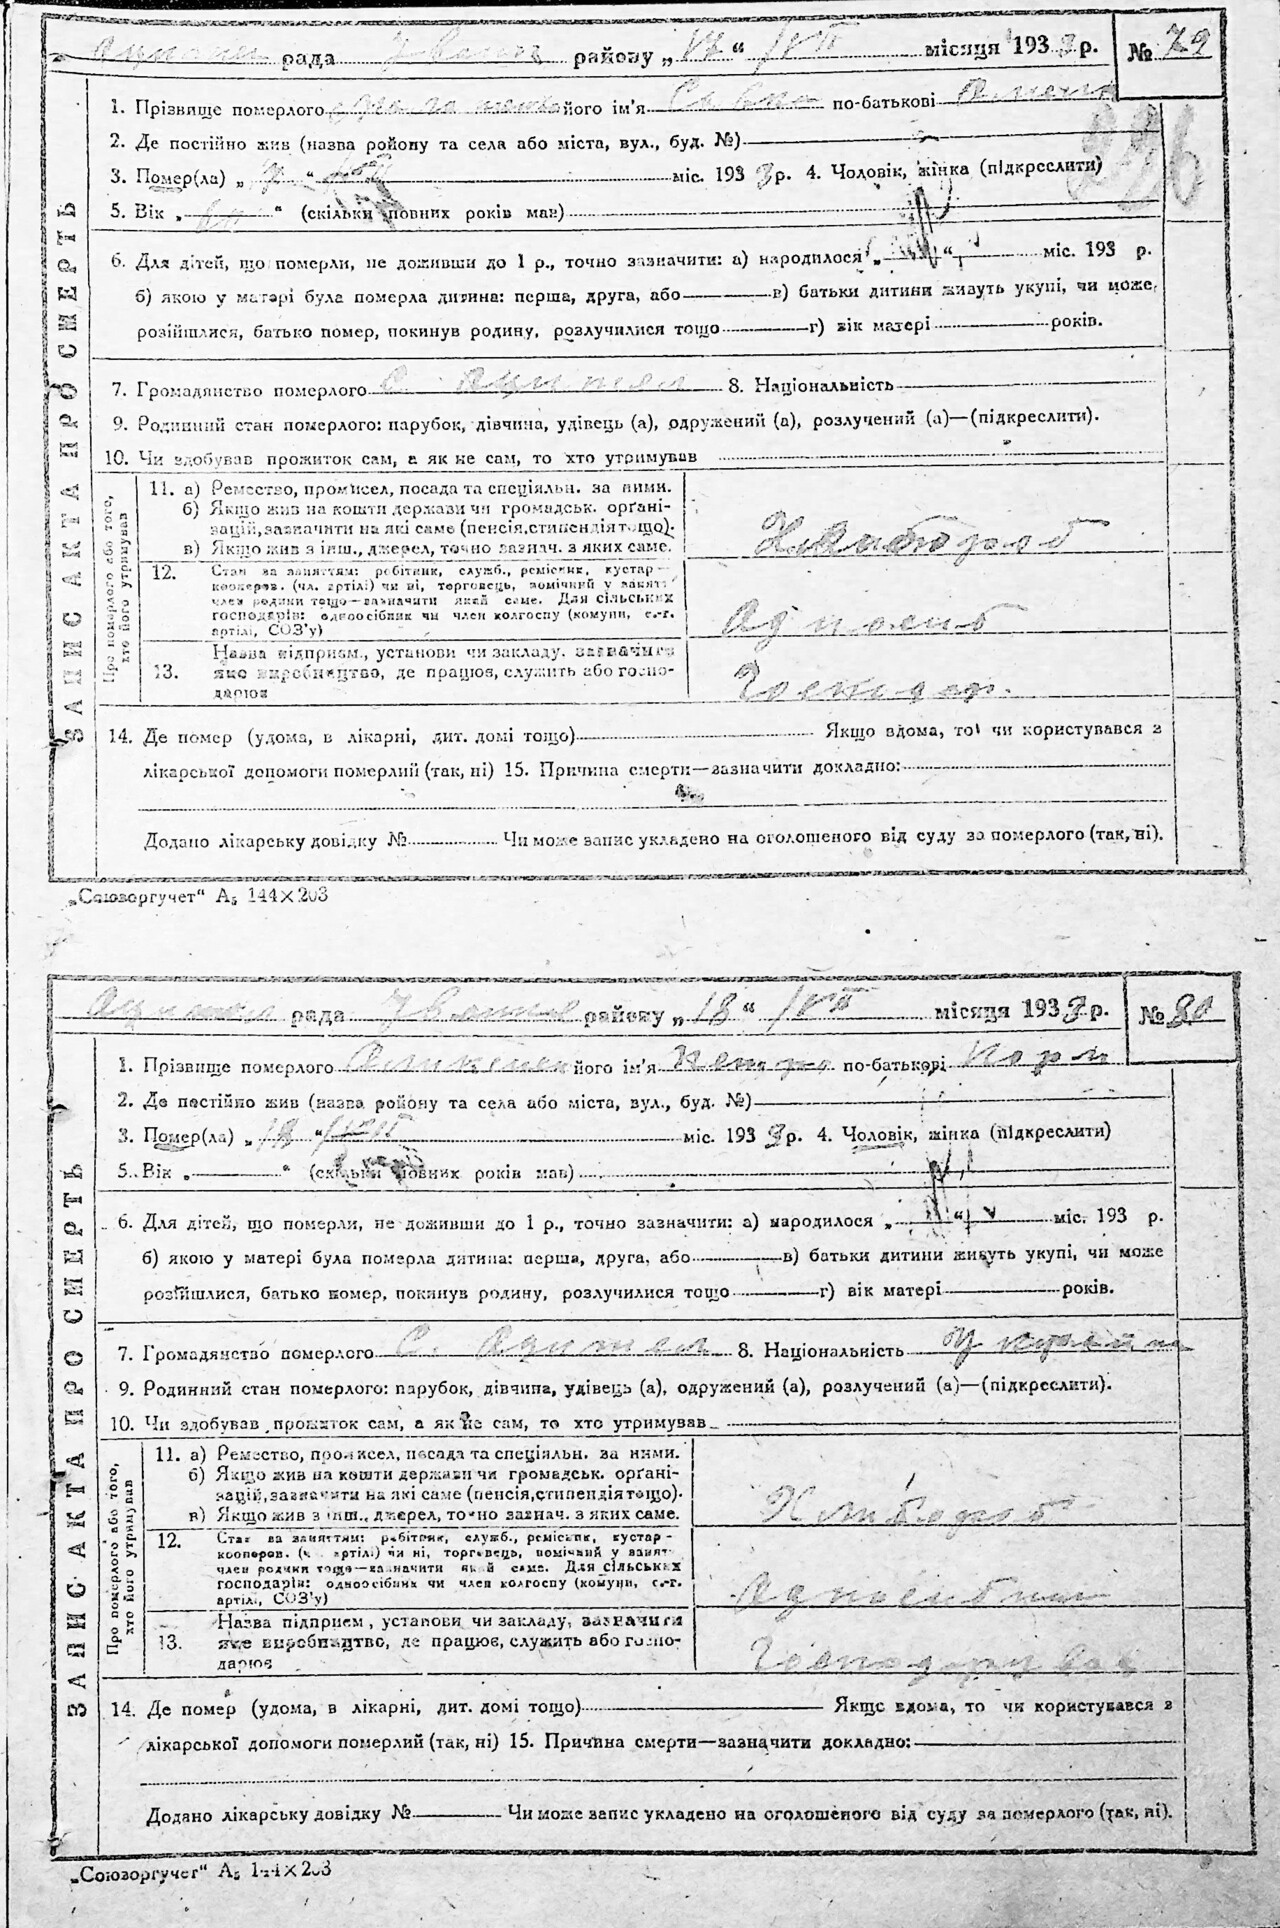 рада району „17“ /VII місяця 1933 р. № 79
1. Прізвище померлого його ім'я Савка по-батькові
226
2. Де постійно жив (назва ройону та села або міста, вул., буд. №)
3. Помер(ла) „ “ міс. 1933 р. 4. Чоловік, жінка (підкреслити)
5. Вік „ “ (скільки повних років мав)
6. Для дітей, що померли, не доживши до 1 р., точно зазначити: а) народилося „ “ міс. 193 р.
б) якою у матері була померла дитина: перша, друга, або в) батьки дитини живуть укупі, чи може,
розійшлися, батько помер, покинув родину, розлучилися тощо г) вік матері років.
7. Громадянство померлого с. 8. Національність
9. Родинний стан померлого: парубок, дівчина, удівець (а), одружений (а), розлучений (а)—(підкреслити).
10. Чи здобував прожиток сам, а як не сам, то хто утримував
ЗАПИС АКТА ПРО СМЕРТЬ
Про померлого або того, хто його утримував
11. а) Ремество, промисел, посада та спеціяльн. за ними.
б) Якщо жив на кошти держави чи громадськ. орґані-
зацій, зазначити на які саме (пенсія, стипендія тощо).
в) Якщо жив з інш., джерел, точно зазнач. з яких саме.
Хлібороб
12. Стан за заняттям: робітник, служб., ремісник, кустар—
кооперов. (чл. артілі) чи ні, торговець, помічний у занятт
член родини тощо—зазначити який саме. Для сільських
господарів: одноосібник чи член колгоспу (комуни, с.-г.
артілі, СОЗ'у)
Одноосіб
13. Назва підприєм., установи чи закладу, зазначити
яке виробництво, де працює, служить або госпо-
дарює
Господар.
14. Де помер (удома, в лікарні, дит. домі тощо) Якщо вдома, то чи користувався з
лікарської допомоги померлий (так, ні) 15. Причина смерти—зазначити докладно:
Додано лікарську довідку № Чи може запис укладено на оголошеного від суду за померлого (так, ні).
„Союзоргучет“ А₅ 144×203
рада району „18“ /VII місяця 1933 р. № 80
1. Прізвище померлого його ім'я Петро по-батькові
2. Де постійно жив (назва ройону та села або міста, вул., буд. №)
3. Помер(ла) „18“ /VII міс. 1933 р. 4. Чоловік, жінка (підкреслити)
5. Вік „ “ (скільки повних років мав)
6. Для дітей, що померли, не доживши до 1 р., точно зазначити: а) народилося „ “ міс. 193 р.
б) якою у матері була померла дитина: перша, друга, або в) батьки дитини живуть укупі, чи може
розійшлися, батько помер, покинув родину, розлучилися тощо г) вік матері років.
7. Громадянство померлого С. 8. Національність
9. Родинний стан померлого: парубок, дівчина, удівець (а), одружений (а), розлучений (а)—(підкреслити).
10. Чи здобував прожиток сам, а як не сам, то хто утримував
ЗАПИС АКТА ПРО СМЕРТЬ
Про померлого або того, хто його утримував
11. а) Ремество, промисел, посада та спеціяльн. за ними.
б) Якщо жив на кошти держави чи громадськ. орґані-
зацій, зазначити на які саме (пенсія, стипендія тощо).
в) Якщо жив з інш., джерел, точно зазнач. з яких саме.
Хлібороб
12. Стан за заняттям: робітник, служб., ремісник, кустар-
кооперов. (чл. артілі) чи ні, торговець, помічний у занятт
член родини тощо—зазначити який саме. Для сільських
господарів: одноосібник чи член колгоспу (комуни, с.-г.
артілі, СОЗ'у)
Одноосібник
13. Назва підприєм., установи чи закладу, зазначити
яке виробництво, де працює, служить або госпо-
дарює
14. Де помер (удома, в лікарні, дит. домі тощо) Якщо вдома, то чи користувався з
лікарської допомоги померлий (так, ні) 15. Причина смерти—зазначити докладно:
Додано лікарську довідку № Чи може запис укладено на оголошеного від суду за померлого (так, ні).
„Союзоргучет“ А₅ 144×203